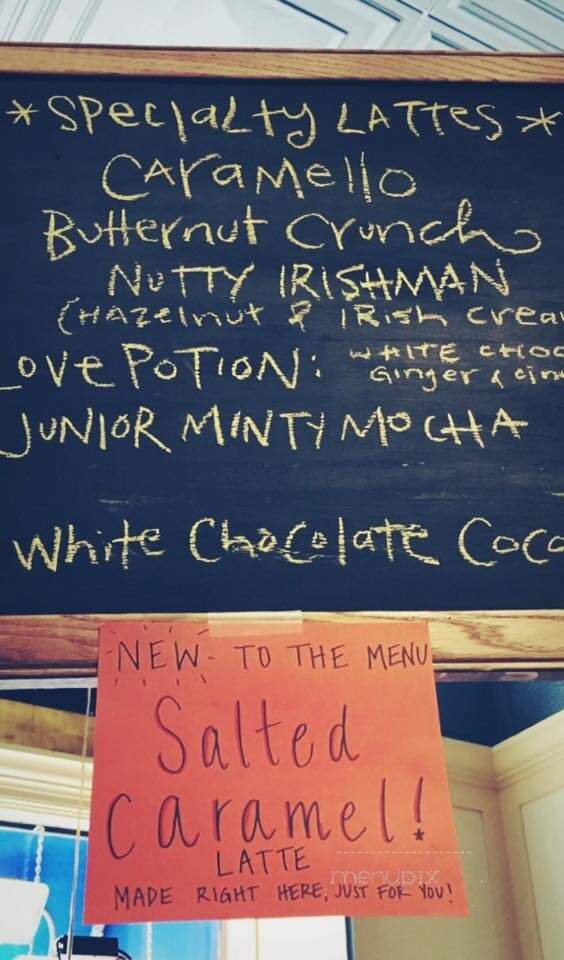 * Specialty Lattes *
Caramello
Butternut Crunch
NUTTY IRISHMAN
(Hazelnut & Irish Crea
ove Potion: WHITE CHOC
Ginger & cin
JUNIOR MINTY MOCHA
White Chocolate Coco
NEW - TO THE MENU
Salted
Caramel!
LATTE
MADE RIGHT HERE, JUST FOR YOU!
menupix